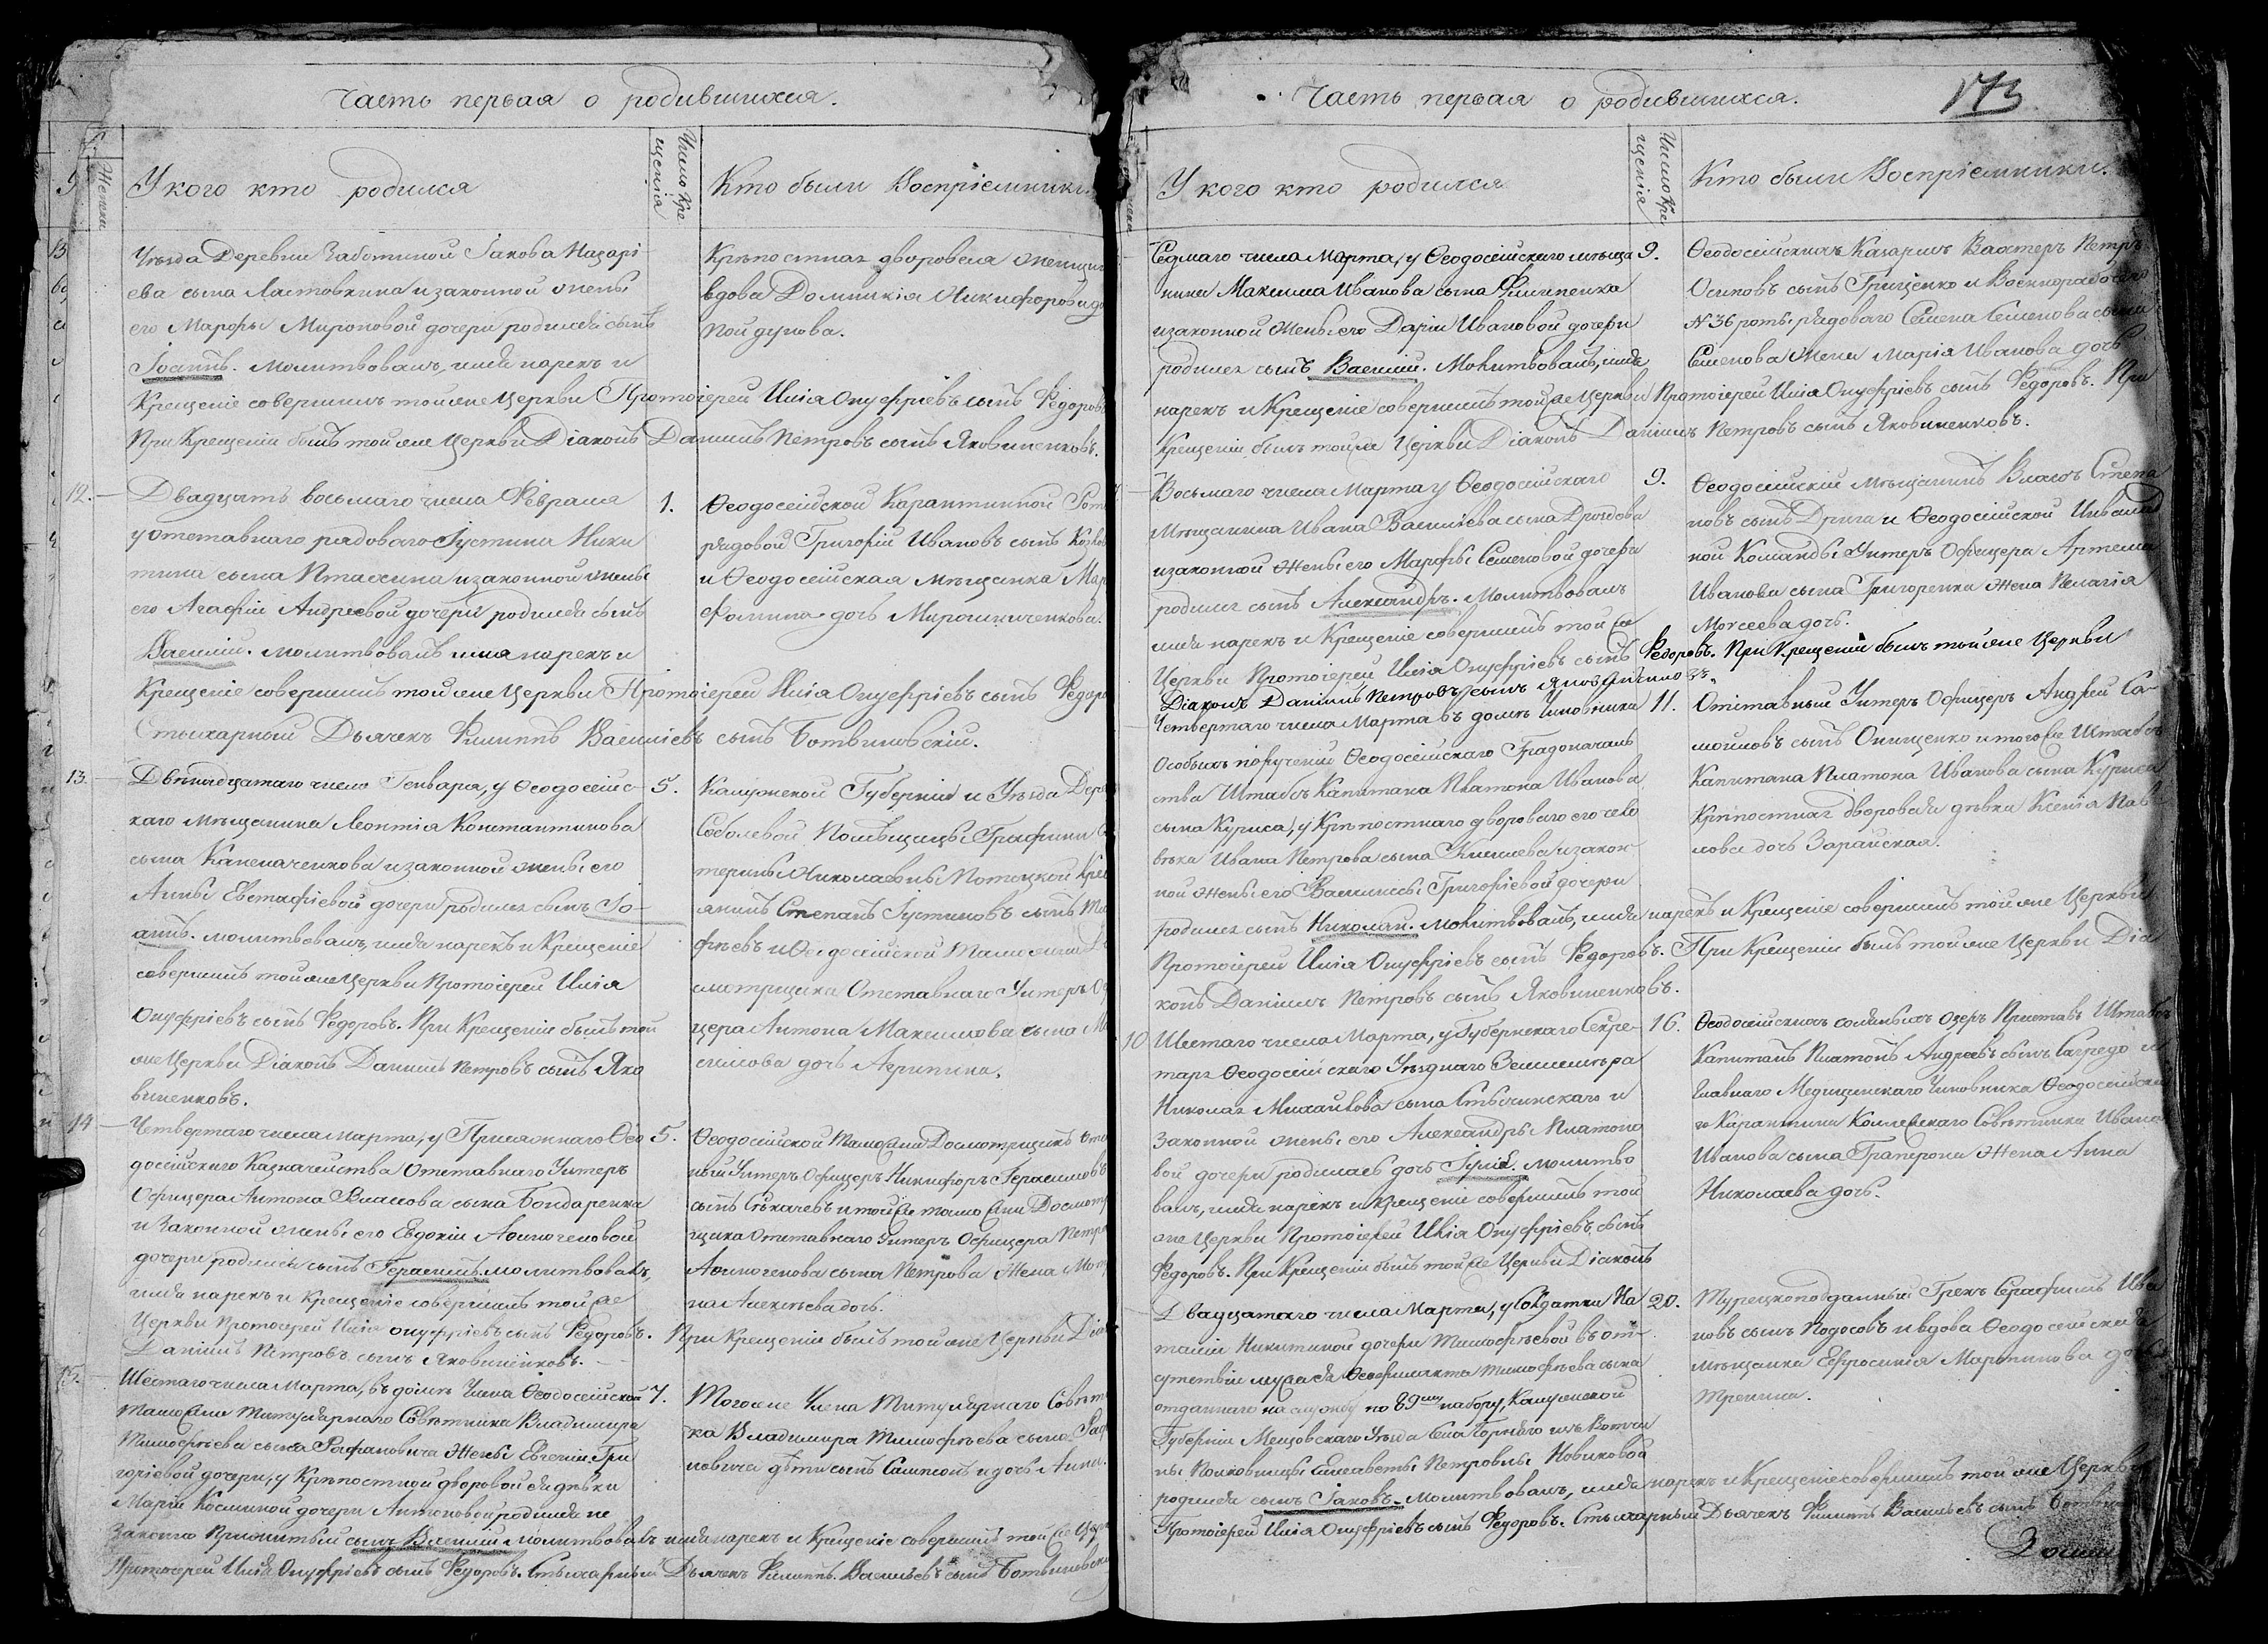 Часть первая о родившихся.
У кого кто родился
Число Кре
щенія
Кто были Воспріемники.
Уѣзда Деревни Заботиной Іакова Назарі
ева сына Ластовкина и законной жены
его Марфы Мироновой дочери родился сынъ
Іоаннъ. молитвовалъ, имя нарекъ и
Крещеніе совершилъ той же Церкви Протоіерей Илія Онуфріевъ сынъ Ѳедоровъ
При Крещеніи былъ той же Церкви Діаконъ Даніилъ Петровъ сынъ Яковиненковъ.
Крѣпостная дворовая женщина
вдова Домникія Никифорова до
Пойдунова.
12.
Двадцать восьмаго числа Февраля
у отставнаго рядоваго Іустина Ники
тина сына Птахина и законной жены
его Агафіи Андреевой дочери родился сынъ
Василій. молитвовалъ имя нарекъ и
Крещеніе совершилъ той же Церкви Протоіерей Илія Онуфріевъ сынъ Ѳедоро
Стихарный Дьячекъ Филиппъ Василіевъ сынъ Ботвиновскій.
1.
Ѳеодосійской Карантинной Роты
рядовой Григорій Ивановъ сынъ
и Ѳеодосійская мѣщанка Мар
Фомина дочь Мирошниченкова.
13.
Двѣнадцатаго число Генваря, у Ѳеодосійс-
каго мѣщанина Леонтія Константинова
сына Капеначенкова и законной жены его
Анны Евстафіевой дочери родился сынъ Іо-
аннъ. молитвовалъ, имя нарекъ и Крещеніе
совершилъ той же Церкви Протоіерей Илія
Онуфріевъ сынъ Ѳедоровъ. При Крещеніи былъ той
же Церкви Діаконъ Даніилъ Петровъ сынъ Яко
виненковъ.
5.
Калужской Губерніи и Уѣзда Дере
Соболевой Помѣщицы Графини
терины Николаевны Потоцкой Крес
янинъ Степанъ Іустиновъ сынъ
фѣевъ и Ѳеодосійской Таможни
смотрщика Отставнаго Унтеръ Оф
цера Антона Максимова сына
симова дочь Агрипина.
14
Четвертаго числа марта, у Присяжнаго Ѳео
досійскаго Казначейства Отставнаго Унтеръ
Офицера Антона Власова сына Бондаренка
и Законной жены его Евдокіи Аѳиногеновой
дочери родился сынъ Герасимъ. молитвовалъ,
имя нарекъ и Крещеніе совершилъ той же
Церкви Протоіерей Илія Онуфріевъ сынъ Ѳедоровъ. При Крещеніи былъ той же Церкви Діак
Даніилъ Петровъ сынъ Яковиненковъ.
5.
Ѳеодосійской Таможни Досмотрщикъ отст
ной Унтеръ Офицеръ Никифоръ Герасимовъ
сынъ Стькачевъ и той же таможни Досмотр
щика Отставнаго Унтеръ Офицера Петра
Аѳиногенова сына Петрова Жена
на Алексѣева дочь.
15.
Шестаго числа Марта, въ домѣ Члена Ѳеодосійской
Таможни Титулярнаго Совѣтника Владимира
Тимофѣева сына Рафановича Жены Евгеніи Гри
горіевой дочери, у Крѣпостной дворовой ея дѣвки
Маріи Косминой дочери Антоновой родился не
Законно Прижитый сынъ Василій. молитвовалъ имя нарекъ и Крещеніе совершилъ той же Церк
Протоіерей Илія Онуфріевъ сынъ Ѳедоровъ. Стихарный Дьячекъ Филиппъ Василіевъ сынъ Ботвиновскі
7.
Того же Члена Титулярнаго Совѣтни
ка Владимира Тимофѣева сына Раф
новича дѣти сынъ Сампсонъ и дочь Анна.
Часть первая о родившихся.
173
У кого кто родился
Число Кре
щенія
Кто были Воспріемники.
Седмаго числа Марта, у Ѳеодосійскаго мѣща
нина Максима Иванова сына Филипенка
и законной жены его Даріи Ивановой дочери
родился сынъ Василій. Молитвовалъ, имя
нарекъ и Крещеніе совершилъ той же Церкви Протоіерей Илія Онуфріевъ сынъ Ѳедоровъ. При
Крещеніи былъ той же Церкви Діаконъ Даніилъ Петровъ сынъ Яковиненковъ.
9.
Ѳеодосійскихъ Казармъ Вахтеръ Петръ
Осиповъ сынъ Грищенко и Военнорабочей
№ 36 роты рядоваго Семена Семенова сына
Семенова жена Марія Иванова дочь.
Восьмаго числа Марта у Ѳеодосійскаго
Мѣщанина Ивана Василіева сына Дроздова
и законной жены его Марфы Семеновой дочери
родился сынъ Александръ. Молитвовалъ
имя нарекъ и Крещеніе совершилъ той же
Церкви Протоіерей Илія Онуфріевъ сынъ Ѳедоровъ. При Крещеніи былъ той же Церкви
Діаконъ Даніилъ Петровъ сынъ
9.
Ѳеодосійскій Мѣщанинъ Власъ Степа
новъ сынъ Дрига и Ѳеодосійской Инвалид
ной Команды Унтеръ Офицера Артема
Иванова сына Григоренка жена Пелагія
Моисеева дочь.
Четвертаго числа Марта въ домѣ Чиновника
Особыхъ порученій Ѳеодосійскаго Градоначаль
ства Штабсъ Капитана Платона Иванова
сына Куриса, у Крѣпостнаго двороваго его чело
вѣка Ивана Петрова сына Киселева и закон
ной жены его Василисы Григоріевой дочери
родился сынъ Николай. молитвовалъ, имя нарекъ и Крещеніе совершилъ той же Церкви
Протоіерей Илія Онуфріевъ сынъ Ѳедоровъ. При Крещеніи былъ той же Церкви Діа
конъ Даніилъ Петровъ сынъ Яковиненковъ.
11.
Отставный Унтеръ Офицеръ Андрей Са-
мойловъ сынъ Онищенко и того же Штабсъ
Капитана Платона Иванова сына Куриса
Крѣпостная дворовая дѣвка Ксенія Пав
лова дочь Зарайская.
10
Шестаго числа Марта, у Губернскаго Секре-
таря Ѳеодосійскаго Уѣзднаго Землемѣра
Николая Михайлова сына Стычинскаго и
Законной жены его Александры Платоно
вой дочери родилась дочь Іулія. молитво
валъ, имя нарекъ и Крещеніе совершилъ той
же Церкви Протоіерей Илія Онуфріевъ сынъ
Ѳедоровъ. При Крещеніи былъ той же Церкви Діаконъ
16.
Ѳеодосійскихъ соляныхъ Озеръ Приставъ Штабсъ
Капитанъ Платонъ Андреевъ сынъ Сагредо и
Главнаго Медицинскаго Чиновника Ѳеодосійска
го Карантина Коллежскаго Совѣтника Ивана
Иванова сына Граперона Жена Анна
Николаева дочь.
Двадцатаго числа Марта, у Солдатки На
таліи Никитиной дочери Тимофѣевой въ от-
сутствіи мужа ея Ѳеофилакта Тимофѣева сына
отданнаго на службу по 89му набору, Калужской
Губерніи Мещовскаго Уѣзда Села Горняго изъ Вотчи
ны Полковницы Елисаветы Петровны Новиковой
родился сынъ Іаковъ. молитвовалъ, имя нарекъ и Крещеніе совершилъ той же Церкви
Протоіерей Илія Онуфріевъ сынъ Ѳедоровъ. Стихарный Дьячекъ Филиппъ Василіевъ сынъ Ботви
20.
Турецкоподданный Грекъ Серафимъ Ива
новъ сынъ Подосовъ и вдова Ѳеодосійская
мѣщанка Ефросинія Мартинова до